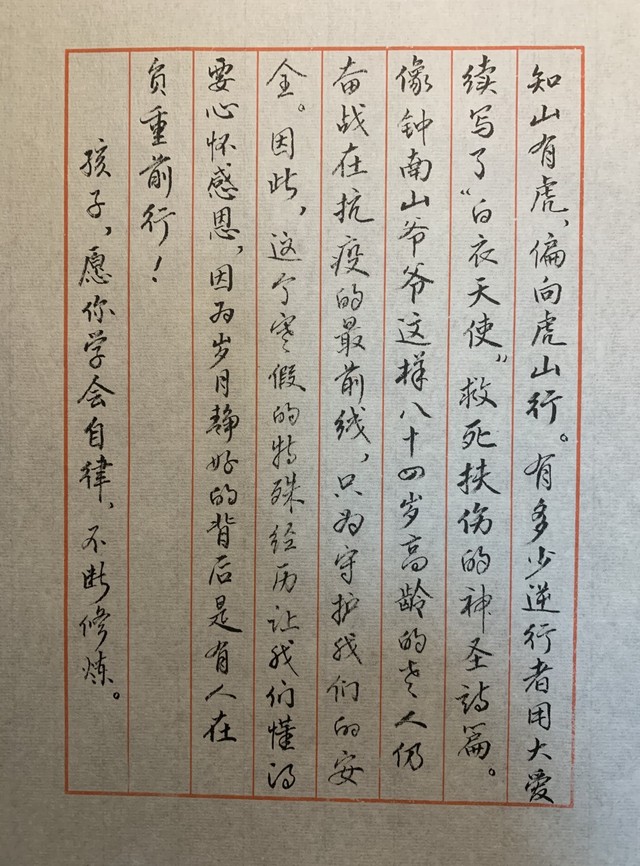 知山有虎，偏向虎山行。有多少逆行者用大爱
续写了“白衣天使”救死扶伤的神圣诗篇。
像钟南山爷爷这样八十四岁高龄的老人仍
奋战在抗疫的最前线，只为守护我们的安
全。因此，这个寒假的特殊经历让我们懂得
要心怀感恩，因为岁月静好的背后是有人在
负重前行！
孩子，愿你学会自律，不断修炼。